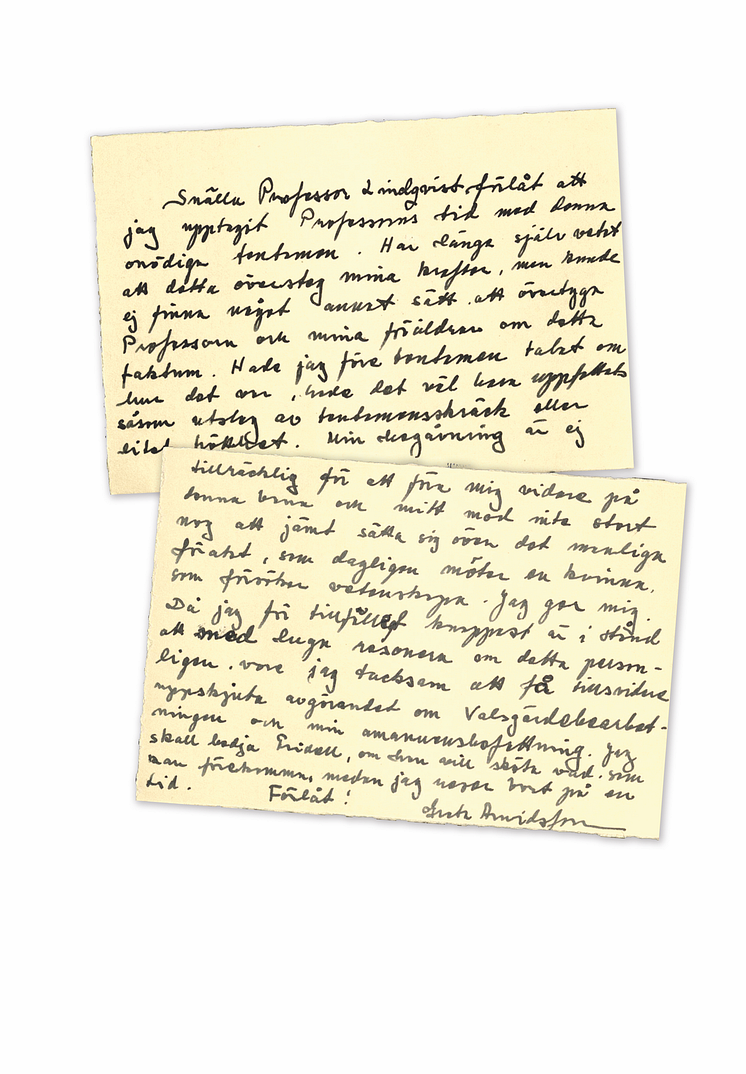 Snälla Professor Lindqvist förlåt att
jag upptagit Professorns tid med denna
onödiga tentamen. Har länge själv vetat
att detta översteg mina krafter, men kunde
ej finna något annat sätt att övertyga
Professorn och mina föräldrar om detta
faktum. Hade jag före tentamen talat om
hur det var, hade det väl bara uppfattats
såsom utslag av tentamensskräck eller
eitel
tillräcklig för att föra mig vidare på
denna bana och mitt mod inte stort
nog att jämt sätta sig över det manliga
förakt, som dagligen möter en kvinna,
som försöker vetenskapa. Jag ger mig.
Då jag för tillfället knappast är i stånd
att med lugn resonera om detta person-
ligen, vore jag tacksam att få tillsvidare
uppskjuta avgörandet om Valsgärdebearbet-
ningen och min amanuensbefattning. Jag
skall bedja Eridell, om hon vill sköta vad som
kan förekomma, medan jag reser bort på en
tid.
Förlåt!
Greta Arwidsson